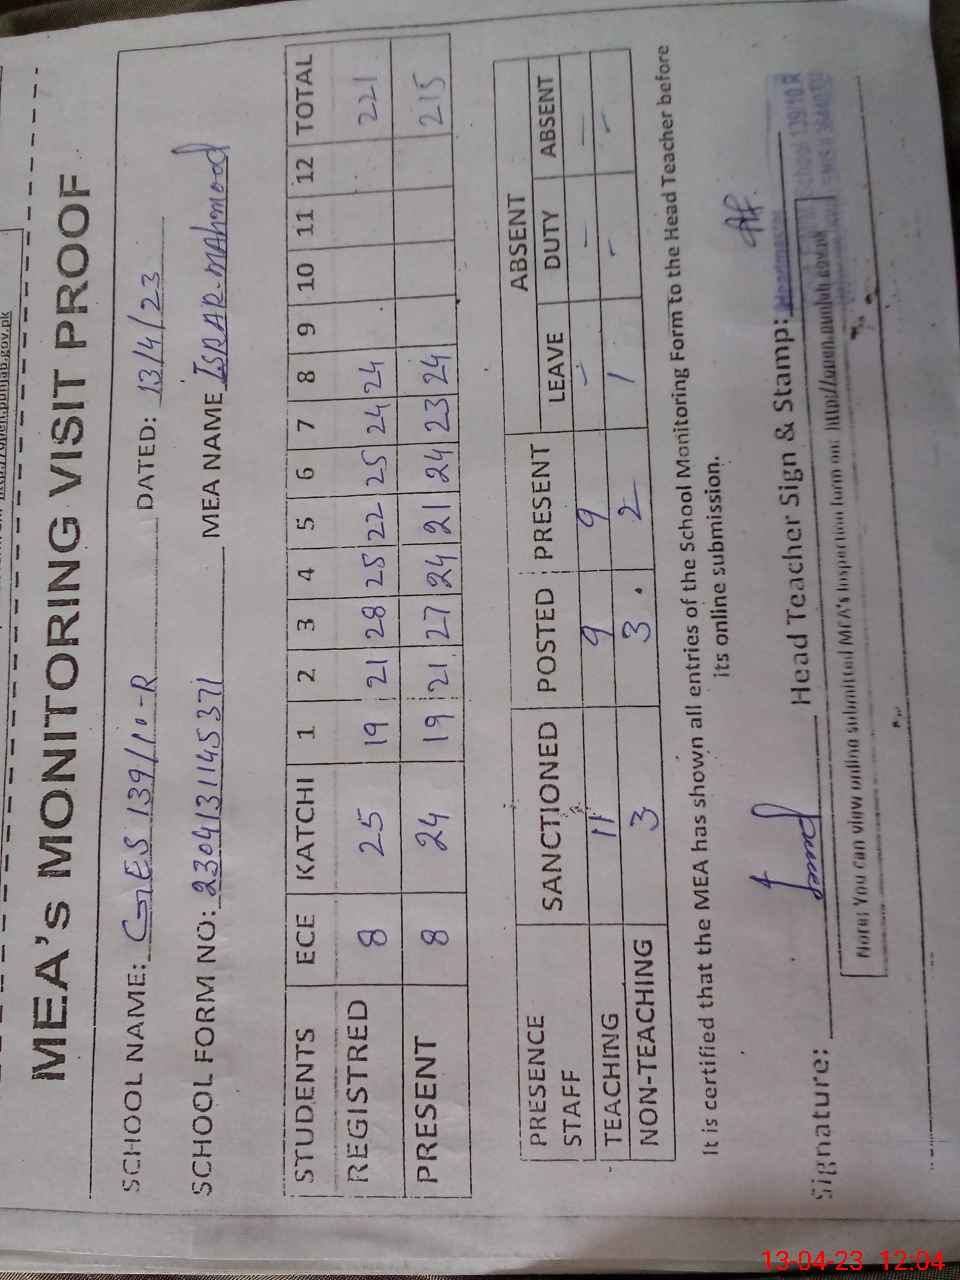 MEA's MONITORING VISIT PROOF
SCHOOL NAME: GES 139/10-R DATED: 13/4/23
SCHOOL FORM NO: 2304131145371 MEA NAME ISRAR-MAhmood
STUDENTS ECE KATCHI 1 2 3 4 5 6 7 8 9 10 11 12 TOTAL
REGISTRED 8 25 19 21 28 25 22 25 24 24 221
PRESENT 8 24 19 21 27 24 21 24 23 24 215
PRESENCE STAFF SANCTIONED POSTED PRESENT ABSENT
LEAVE DUTY ABSENT
TEACHING 11 9 9 - - -
NON-TEACHING 3 3 2 1 - -
It is certified that the MEA has shown all entries of the School Monitoring Form to the Head Teacher before
its online submission.
Signature: Head Teacher Sign & Stamp:
Note: You can view online submitted MEA's Inspection form on:
13-04-23 12:04